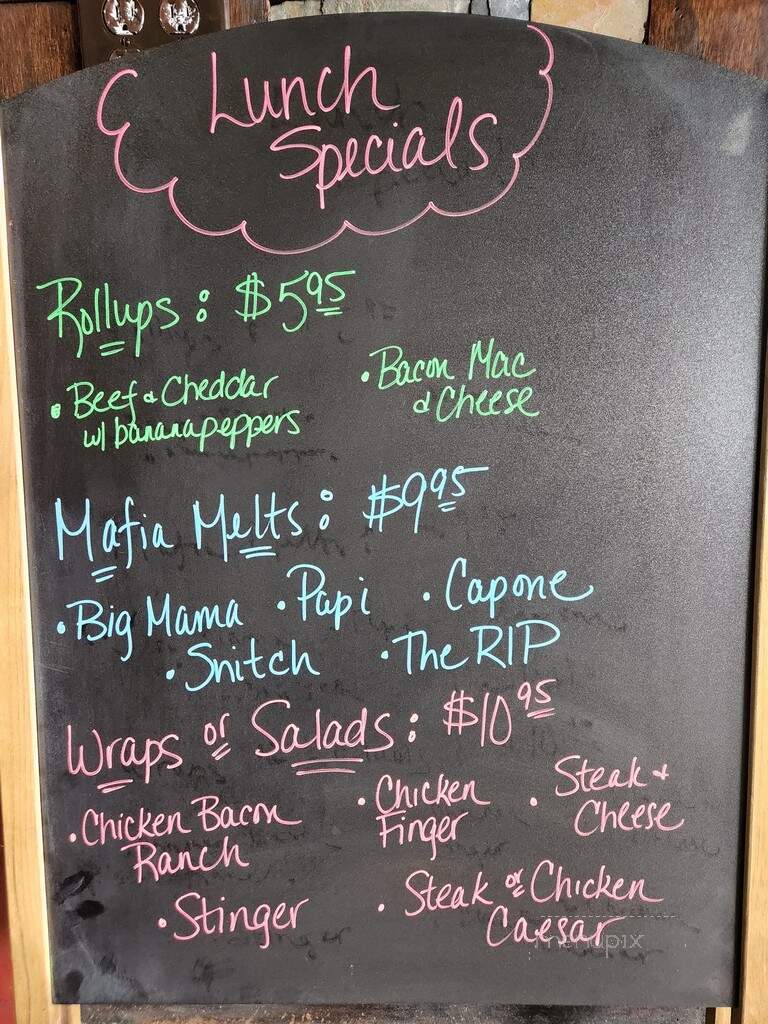 Lunch
Specials
Rollups : $5.95
• Beef & Cheddar
w/ bananapeppers
• Bacon Mac
& Cheese
Mafia Melts : $9.95
• Big Mama • Papi • Capone
• Snitch • The RIP
Wraps or Salads : $10.95
• Chicken Bacon
Ranch
• Chicken
Finger
• Steak &
Cheese
• Stinger
• Steak or Chicken
Caesar
menupix